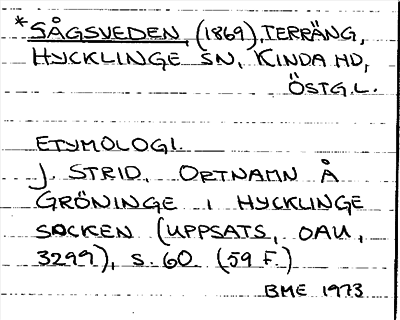 *SÅGSVEDEN, (1869), TERRÄNG,
HYCKLINGE SN, KINDA HD,
ÖSTG.L.
ETYMOLOGI.
J. STRID, ORTNAMN Å
GRÖNINGE I HYCKLINGE
SOCKEN (UPPSATS, OAU,
3299), S. 60 (59 F.)
BME 1973